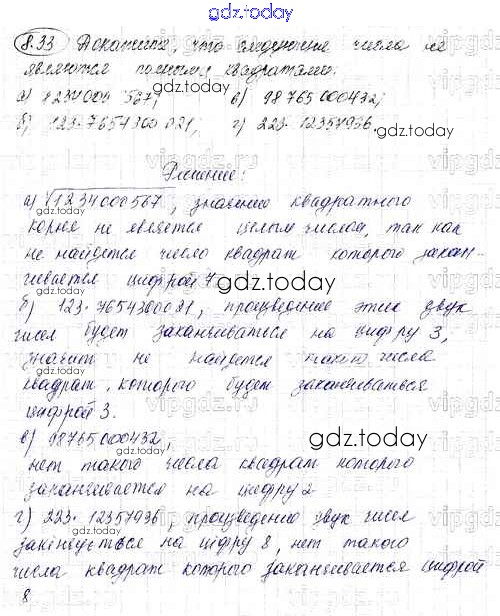 gdz.today
8.33 Докажите, что следующие числа не
являются полными квадратами:
а) 1234000567; в) 98765000432;
б) 123·7654300021; г) 223·12357936.
Решение:
а) √1234000567, значение квадратного
корня не является целым числом, так как
не найдется число квадрат которого закан-
чивается цифрой 7.
б) 123·7654300021, произведение этих двух
чисел будет заканчиваться на цифру 3,
значит не найдется такого числа
квадрат, которого будет заканчиваться
цифрой 3.
в) 98765000432,
нет такого числа квадрат которого
заканчивается на цифру 2
г) 223·12357936, произведение двух чисел
закінчується на цифру 8, нет такого
числа квадрат которого заканчивается цифрой
8
gdz.today
gdz.today
gdz.today
gdz.today
gdz.today
gdz.today
gdz.today
gdz.today